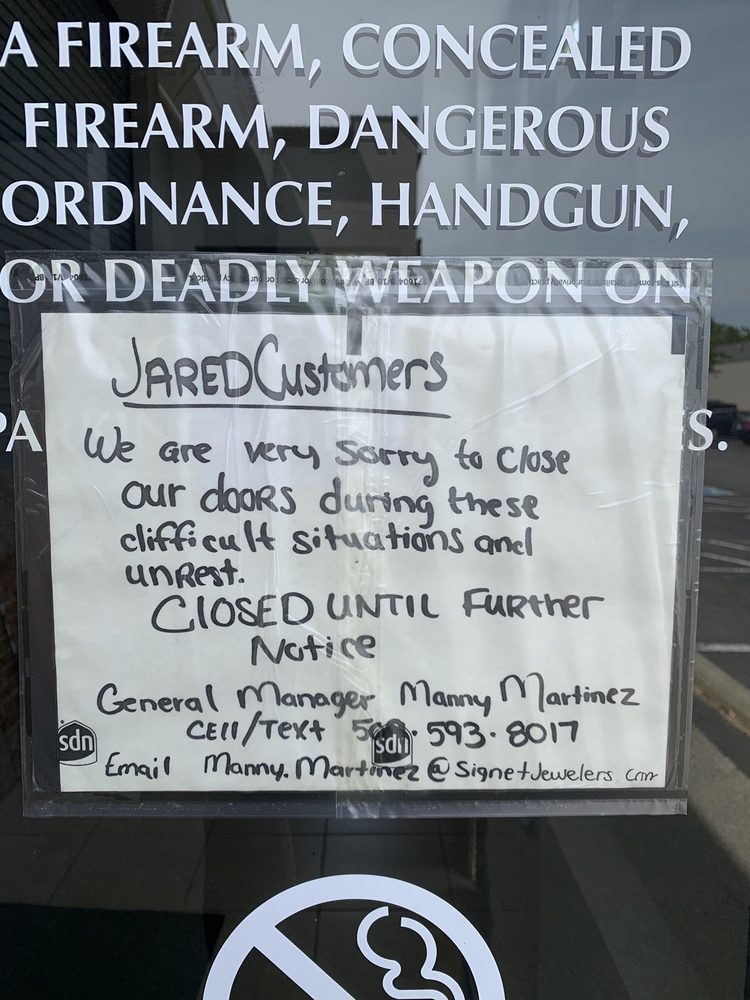 A FIREARM, CONCEALED
FIREARM, DANGEROUS
ORDNANCE, HANDGUN,
OR DEADLY WEAPON ON
PA S.
JARED Customers
We are very sorry to close
our doors during these
difficult situations and
unRest.
CLOSED UNTIL FuRther
Notice
General Manager Manny Martinez
CEll/Text 593·8017
Email Manny.Martinez@SignetJewelers.com
sdn
sdn